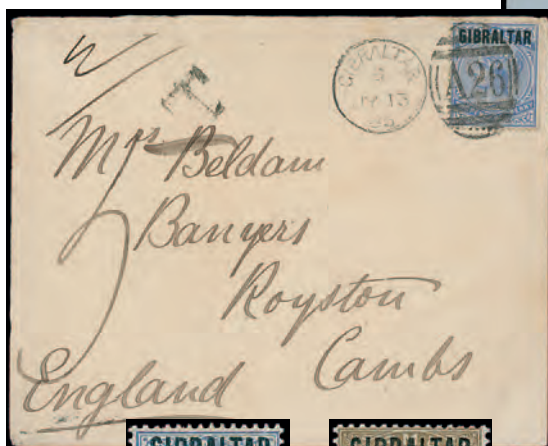 GIBRALTAR
GIBRALTAR
A26
T
Mrs Beldam
Banyers
Royston
Cambs
England
GIBRALTAR
GIBRALTAR